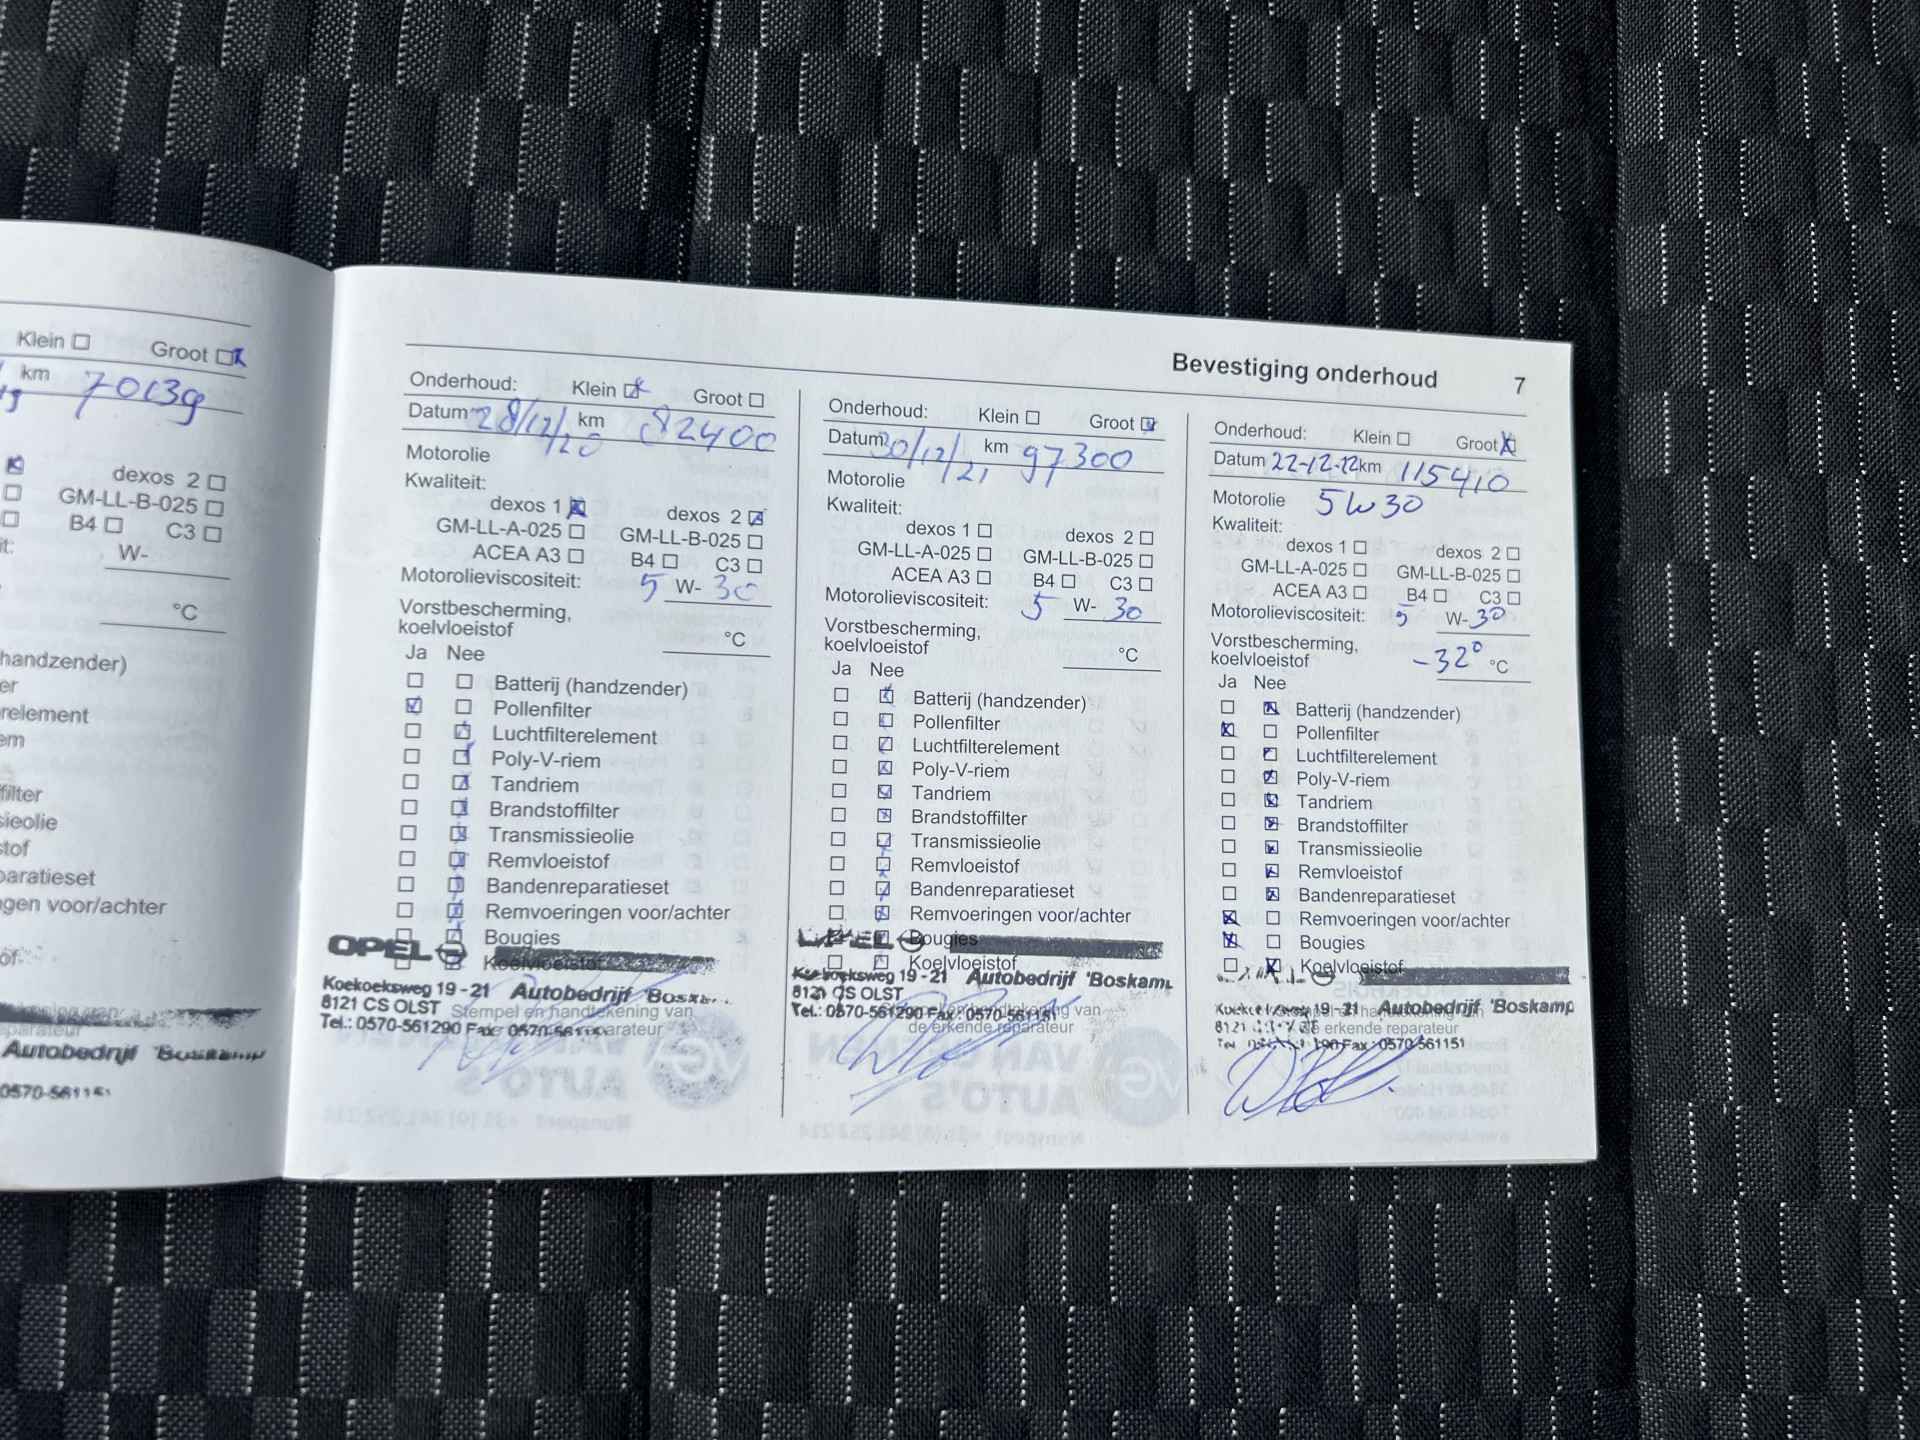 Klein ☐ Groot ☒
km 70139
☒ dexos 2 ☐
☐ GM-LL-B-025 ☐
☐ B4 ☐ C3 ☐
W-
°C
handzender)
relement
filter
sieolie
stof
paratieset
gen voor/achter
Autobedrijf 'Boskamp
0570-561151
Bevestiging onderhoud 7
Onderhoud: Klein ☒ Groot ☐
Datum 28/12/20 km 82400
Motorolie
Kwaliteit:
dexos 1 ☒ dexos 2 ☒
GM-LL-A-025 ☐ GM-LL-B-025 ☐
ACEA A3 ☐ B4 ☐ C3 ☐
Motorolieviscositeit: 5 W- 30
Vorstbescherming,
koelvloeistof °C
Ja Nee
☐ ☐ Batterij (handzender)
☒ ☐ Pollenfilter
☐ ☒ Luchtfilterelement
☐ ☒ Poly-V-riem
☐ ☒ Tandriem
☐ ☒ Brandstoffilter
☐ ☒ Transmissieolie
☐ ☒ Remvloeistof
☐ ☒ Bandenreparatieset
☐ ☒ Remvoeringen voor/achter
☐ ☒ Bougies
☐ ☒ Koelvloeistof
OPEL
Koekoeksweg 19 - 21 Autobedrijf 'Boska
8121 CS OLST Stempel en handtekening van
Tel.: 0570-561290 Fax : 0570-561151 reparateur
Onderhoud: Klein ☐ Groot ☒
Datum 30/12/21 km 97300
Motorolie
Kwaliteit:
dexos 1 ☐ dexos 2 ☐
GM-LL-A-025 ☐ GM-LL-B-025 ☐
ACEA A3 ☐ B4 ☐ C3 ☐
Motorolieviscositeit: 5 W- 30
Vorstbescherming,
koelvloeistof °C
Ja Nee
☐ ☒ Batterij (handzender)
☐ ☒ Pollenfilter
☐ ☒ Luchtfilterelement
☐ ☒ Poly-V-riem
☐ ☒ Tandriem
☐ ☒ Brandstoffilter
☐ ☒ Transmissieolie
☐ ☒ Remvloeistof
☐ ☒ Bandenreparatieset
☐ ☒ Remvoeringen voor/achter
☐ ☒ Bougies
☐ ☐ Koelvloeistof
OPEL
Koekoeksweg 19 - 21 Autobedrijf 'Boskam
8121 CS OLST en handtekening van
Tel.: 0570-561290 Fax : 0570-561151
de erkende reparateur
Onderhoud: Klein ☐ Groot ☒
Datum 22-12-22 km 115410
Motorolie 5W30
Kwaliteit:
dexos 1 ☐ dexos 2 ☐
GM-LL-A-025 ☐ GM-LL-B-025 ☐
ACEA A3 ☐ B4 ☐ C3 ☐
Motorolieviscositeit: 5 W- 30
Vorstbescherming,
koelvloeistof -32° °C
Ja Nee
☐ ☒ Batterij (handzender)
☒ ☐ Pollenfilter
☐ ☒ Luchtfilterelement
☐ ☒ Poly-V-riem
☐ ☒ Tandriem
☐ ☒ Brandstoffilter
☐ ☒ Transmissieolie
☐ ☒ Remvloeistof
☐ ☒ Bandenreparatieset
☒ ☐ Remvoeringen voor/achter
☒ ☐ Bougies
☐ ☒ Koelvloeistof
19 - 21 Autobedrijf 'Boskamp
8121 de erkende reparateur
Fax : 0570-561151